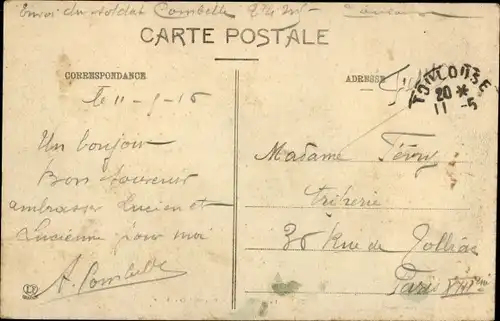 Envoi du soldat Combette
CARTE POSTALE
CORRESPONDANCE
ADRESSE
TOULOUSE
20 *
11 -5
Le 11-5-15
Un bonjour
Bon souvenir
ambrasser Lucien et
Lucienne pour moi
A. Combette
Madame
triperie
36 Rue de
Paris